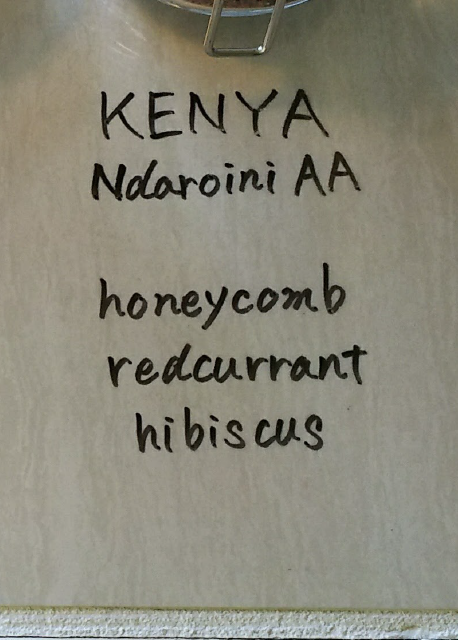 KENYA
Ndaroini AA
honeycomb
redcurrant
hibiscus